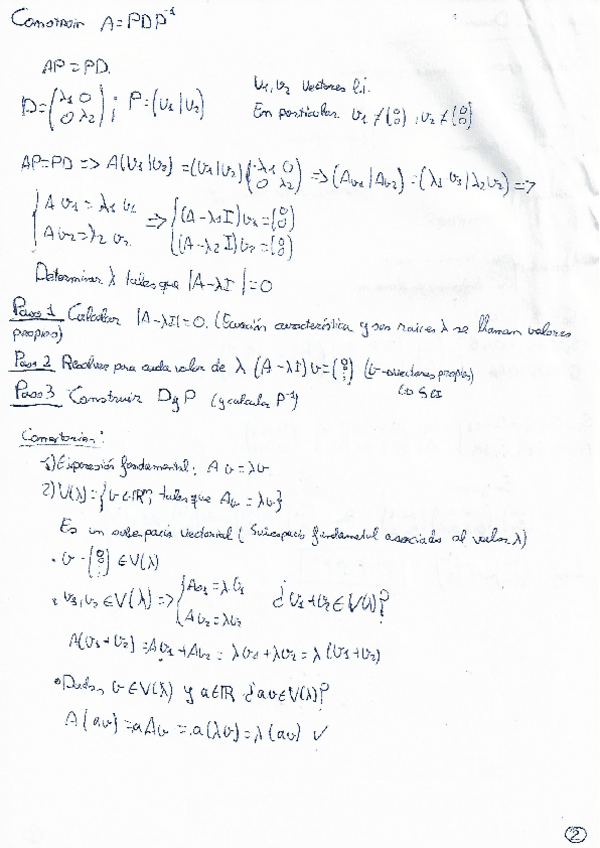 Construir A=PDP⁻¹
AP=PD.
D=(λ1 0 / 0 λ2); P=(v1|v2)
v1,v2 vectores l.i.
En particular v1≠(0 / 0), v2≠(0 / 0)
AP=PD => A(v1|v2)=(v1|v2)(λ1 0 / 0 λ2) => (Av1|Av2)=(λ1v1|λ2v2) =>
{Av1=λ1v1 / Av2=λ2v2 => {(A-λ1I)v1=(0 / 0) / (A-λ2I)v2=(0 / 0)
Determinar λ tales que |A-λI|=0
Paso 1 Calcular |A-λI|=0. (Ecuación característica y sus raíces λ se llaman valores
propios)
Paso 2 Resolver para cada valor de λ (A-λI)v=(0 / 0 / ⋮) (v→vectores propios)
↳ SCI
Paso 3 Construir D y P (y calcular P⁻¹)
Comentarios:
1) Expresión fundamental: Av=λv
2) V(λ)={v∈ℝⁿ, tales que Av=λv}
Es un subespacio vectorial (Subespacio fundamental asociado al valor λ)
• v=(0 / 0 / ⋮)∈V(λ)
• v1,v2∈V(λ) => {Av1=λv1 / Av2=λv2 ¿v1+v2∈V(λ)?
A(v1+v2)=Av1+Av2=λv1+λv2=λ(v1+v2)
• Dados v∈V(λ) y a∈ℝ ¿av∈V(λ)?
A(av)=aAv=a(λv)=λ(av) ✓
2